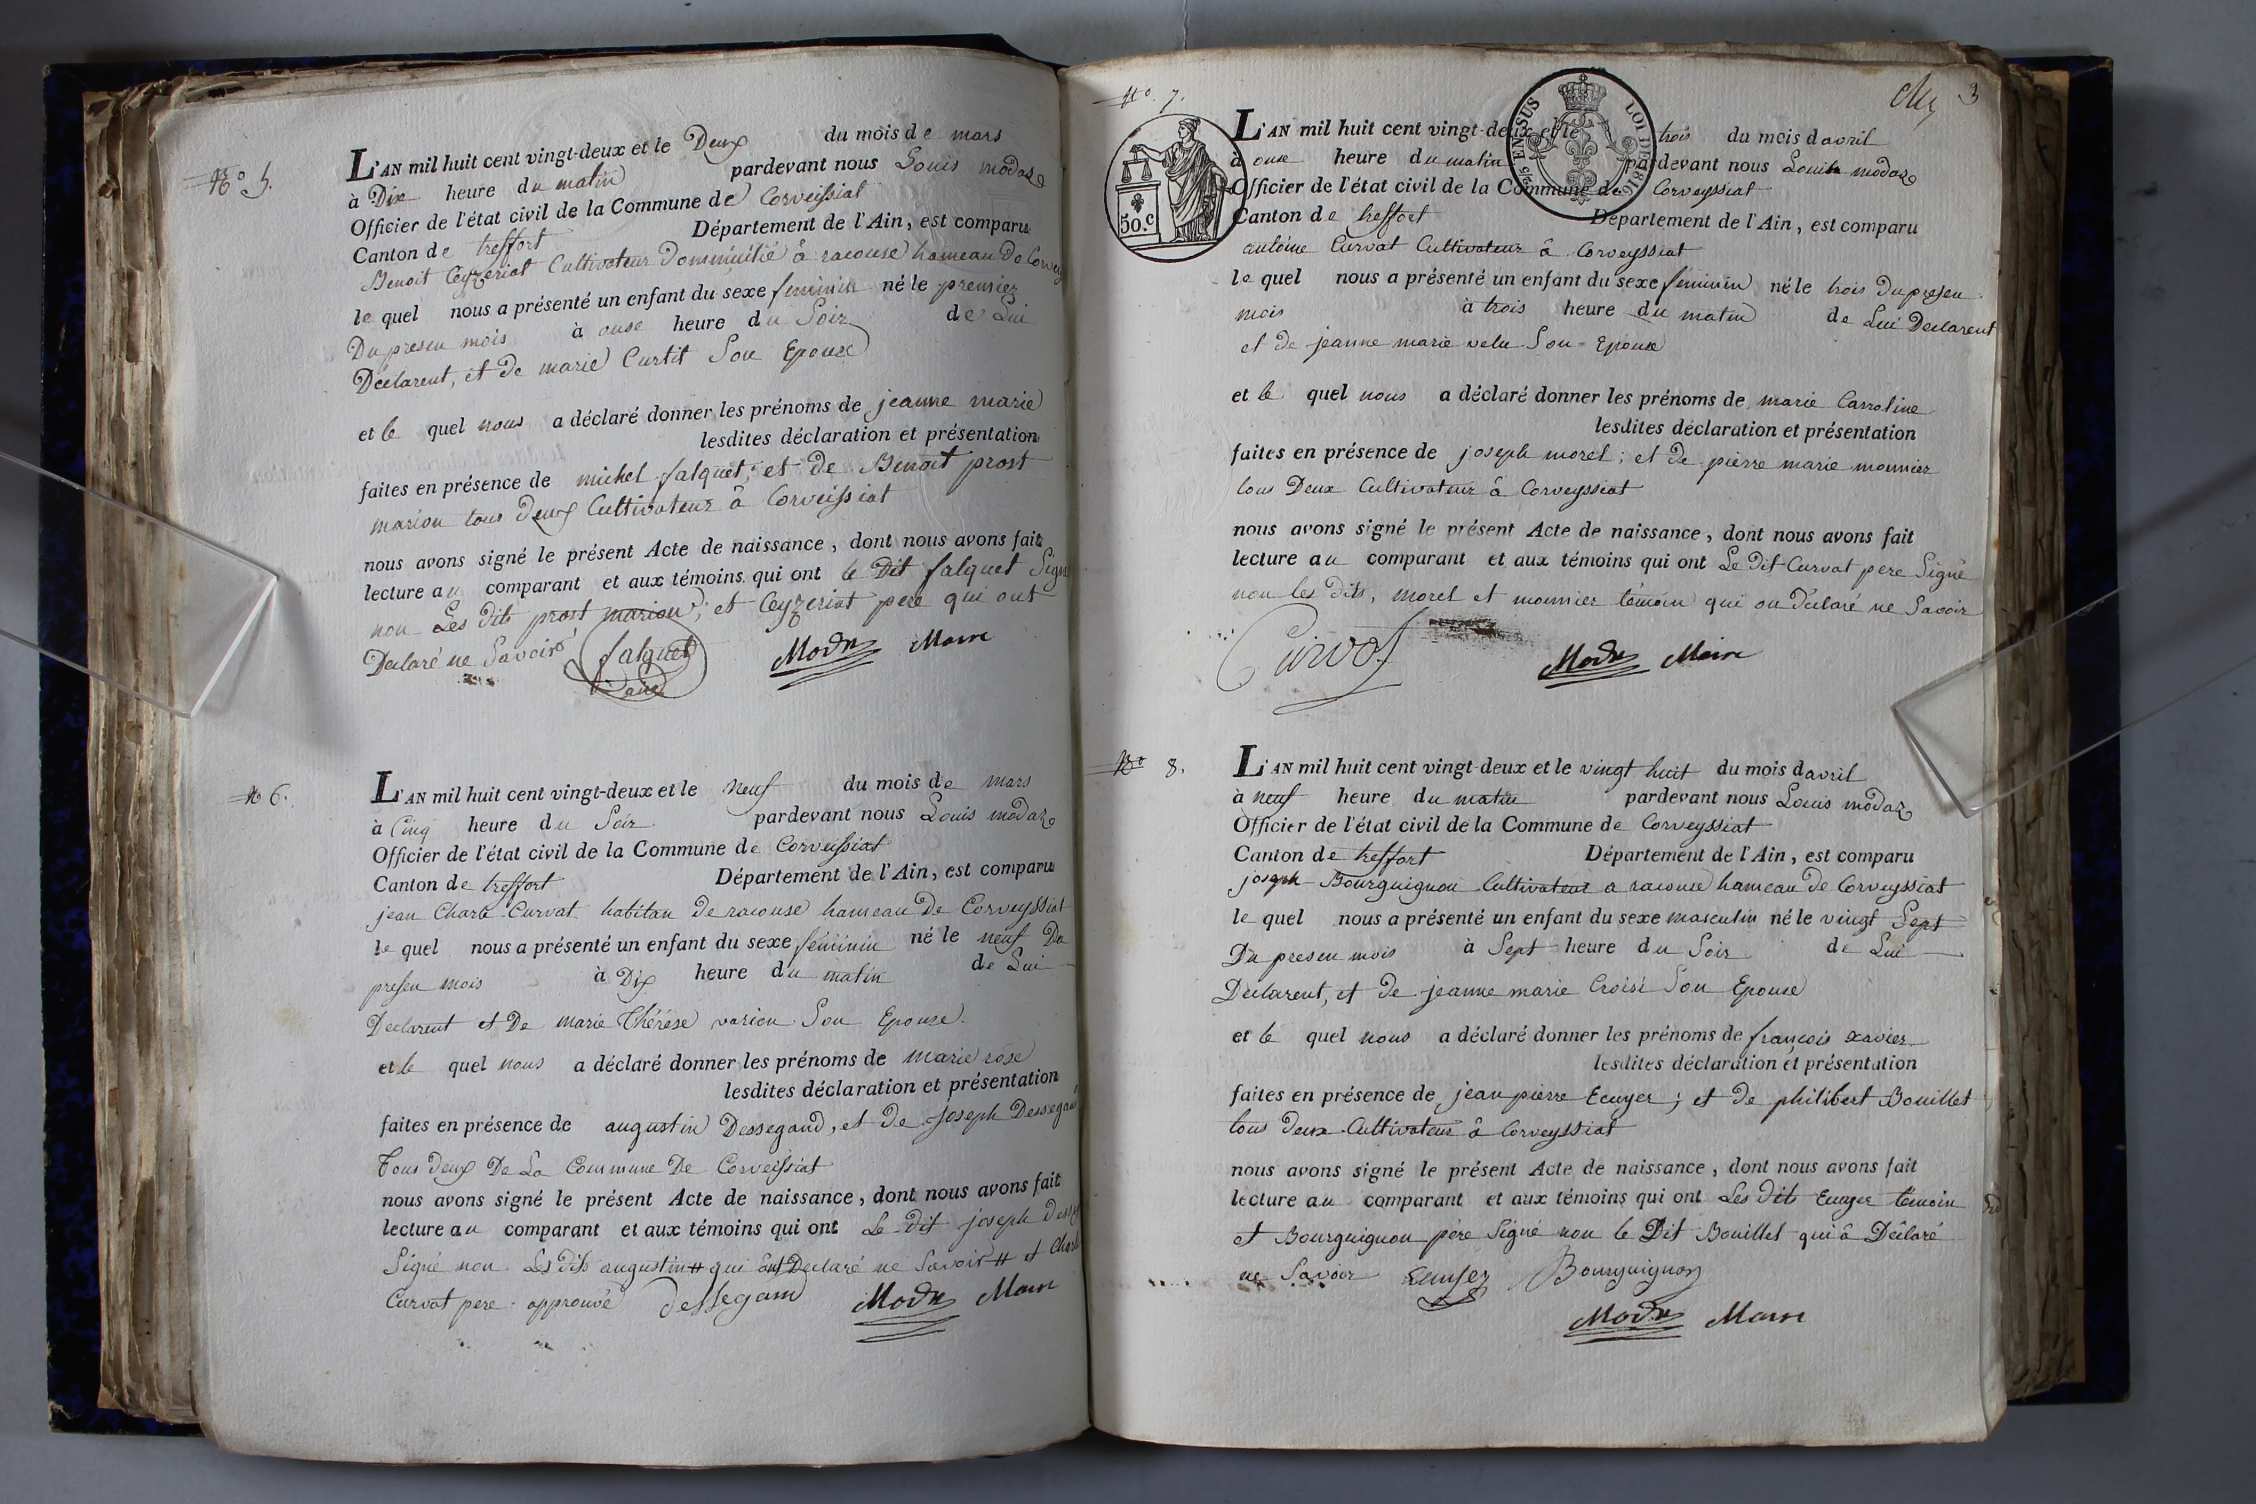 No. 5.
L'AN mil huit cent vingt-deux et le Deux du mois de mars
à Dix heure du matin pardevant nous Louis modaz
Officier de l'état civil de la Commune de Corveissiat
Canton de treffort Département de l'Ain, est comparu
Benoit Ceyzeriat Cultivateur Domicilié à racouse hameau de Corvey
le quel nous a présenté un enfant du sexe feminin né le premier
Du presen mois à onse heure du Soir de Lui
Déclarent, et de marie Curtit Son Epouse
et le quel nous a déclaré donner les prénoms de jeanne marie
lesdites déclaration et présentation
faites en présence de michel falquet; et de Benoit prost
marion tous deux Cultivateur à Corveissiat
nous avons signé le présent Acte de naissance, dont nous avons fait
lecture au comparant et aux témoins qui ont le Dit falquet Signé
non Les dits prost marion; et Ceyzeriat pere qui ont
Déclaré ne Savoir falquet Modaz Maire
N 6.
L'AN mil huit cent vingt-deux et le Neuf du mois de mars
à Cinq heure du Soir pardevant nous Louis modaz
Officier de l'état civil de la Commune de Corveissiat
Canton de treffort Département de l'Ain, est comparu
jean Charle Curvat habitan de racouse hameau de Corveyssiat
le quel nous a présenté un enfant du sexe féminin né le neuf Du
presen mois à Dix heure du matin de Lui
Declarent et De marie Thérése varion Son Epouse.
et le quel nous a déclaré donner les prénoms de marie rose
lesdites déclaration et présentation
faites en présence de augustin Dessegand, et de joseph Dessegand
Tous deux De La Commune De Corveissiat
nous avons signé le présent Acte de naissance, dont nous avons fait
lecture au comparant et aux témoins qui ont Le dit joseph
Signé non Les dits augustin # qui ont Declaré ne Savoir # et Charle
Curvat pere approuvé dessegand Modaz Maire
3
No. 7.
50.C
EN SUS
LOI DE 1816
L'AN mil huit cent vingt-deux et le trois du mois d avril
à onse heure du matin pardevant nous Louis modaz
Officier de l'état civil de la Commune de Corveyssiat
Canton de treffort Département de l'Ain, est comparu
antoine Curvat Cultivateur à Corveyssiat
le quel nous a présenté un enfant du sexe feminin né le trois Du presen
mois à trois heure du matin de Lui Declarent
et de jeanne marie velu Son Epouse
et le quel nous a déclaré donner les prénoms de marie Carroline
lesdites déclaration et présentation
faites en présence de joseph morel; et de pierre marie monnier
tous Deux Cultivateur à Corveyssiat
nous avons signé le présent Acte de naissance, dont nous avons fait
lecture au comparant et aux témoins qui ont Le dit Curvat pere Signé
non les dits, morel et monnier témoin qui on Déclaré ne Savoir
Curvat Modaz Maire
No 8.
L'AN mil huit cent vingt-deux et le vingt huit du mois d avril
à neuf heure du matin pardevant nous Louis modaz
Officier de l'état civil de la Commune de Corveyssiat
Canton de treffort Département de l'Ain, est comparu
joseph Bourguignon Cultivateur a racouse hameau de Corveyssiat
le quel nous a présenté un enfant du sexe masculin né le vingt Sept
Du presen mois à Sept heure du Soir de Lui
Déclarent, et de jeanne marie Croisi Son Epouse
et le quel nous a déclaré donner les prénoms de françois xavier
lesdites déclaration et présentation
faites en présence de jean pierre Ecuyer; et de philibert Bouillet
tous deux Cultivateur à Corveyssiat
nous avons signé le présent Acte de naissance, dont nous avons fait
lecture au comparant et aux témoins qui ont Les dits Ecuyer témoin
et Bourguignon père Signé non le Dit Bouillet qui à Déclaré
ne Savoir Bourguignon
Modaz Maire